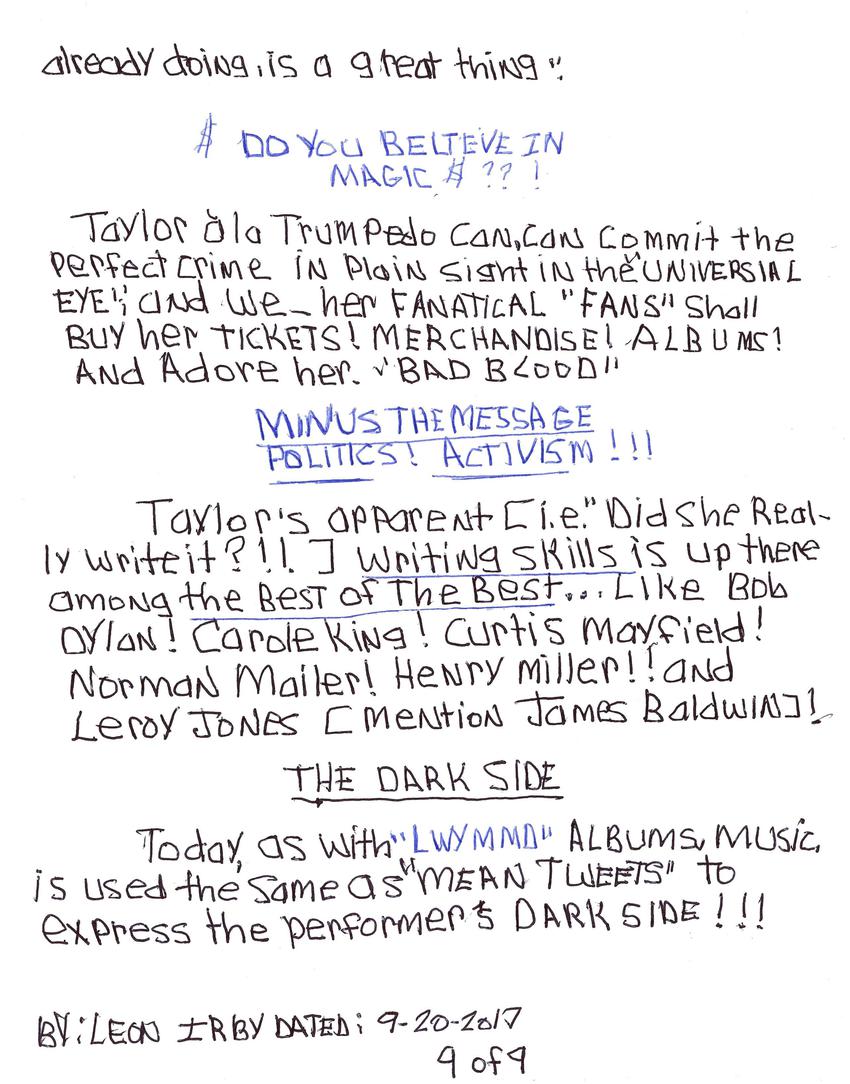 already doing, is a great thing".
$ DO YOU BELIEVE IN
MAGIC $ ?? !
Taylor àla Trumpedo CAN, CAN Commit the
perfect crime IN Plain sight in the "UNIVERSIAL
EYE"; and We_ her FANATICAL "FANS" Shall
BUY her TICKETS! MERCHANDISE! ALBUMS!
AND Adore her. "BAD BLOOD"
MINUS THE MESSAGE
POLITICS! ACTIVISM !!!
Taylor's apparent [i.e." Did she Real-
ly write it?!!. ] Writing skills is up there
among the BEST of The Best... Like Bob
Dylan! Carole King! Curtis Mayfield!
Norman Mailer! Henry Miller!! and
Leroy JONES [mention James Baldwin]!
THE DARK SIDE
Today, as with "LWYMMD" ALBUMS, MUSIC,
is used the same as "MEAN TWEETS" to
express the performer's DARK SIDE!!!
BY: LEON IRBY DATED: 9-20-2017
9 of 9